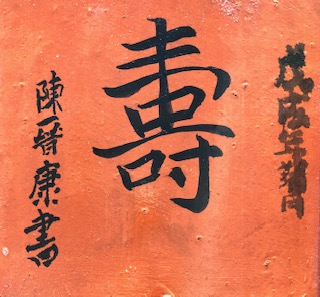 戊戌年端月
壽
陳一晉康書